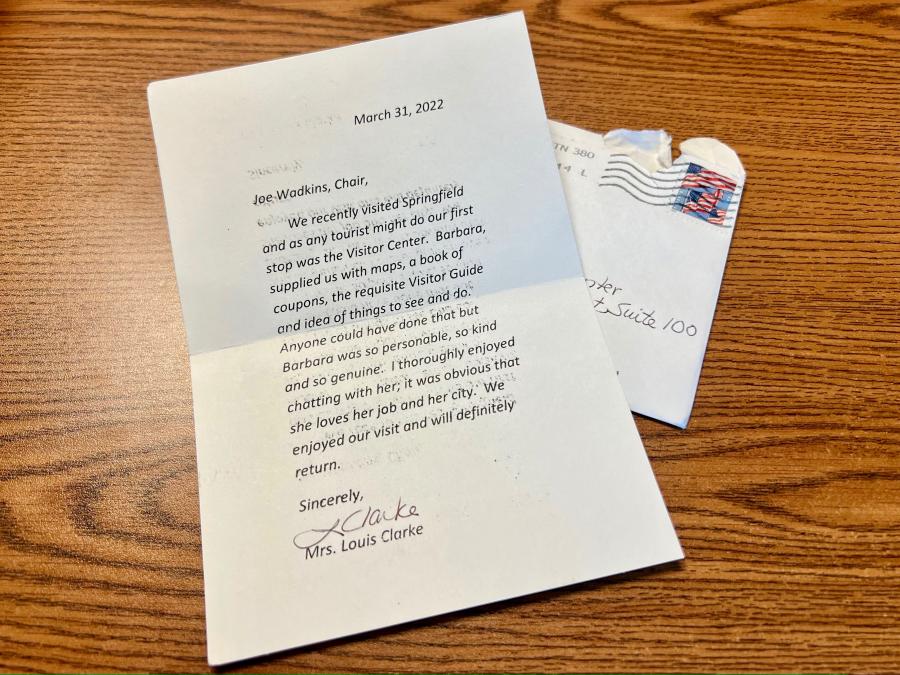 March 31, 2022
Joe Wadkins, Chair,
We recently visited Springfield
and as any tourist might do our first
stop was the Visitor Center. Barbara,
supplied us with maps, a book of
coupons, the requisite Visitor Guide
and idea of things to see and do.
Anyone could have done that but
Barbara was so personable, so kind
and so genuine. I thoroughly enjoyed
chatting with her; it was obvious that
she loves her job and her city. We
enjoyed our visit and will definitely
return.
Sincerely,
L Clarke
Mrs. Louis Clarke
TN 380
4 L
Suite 100